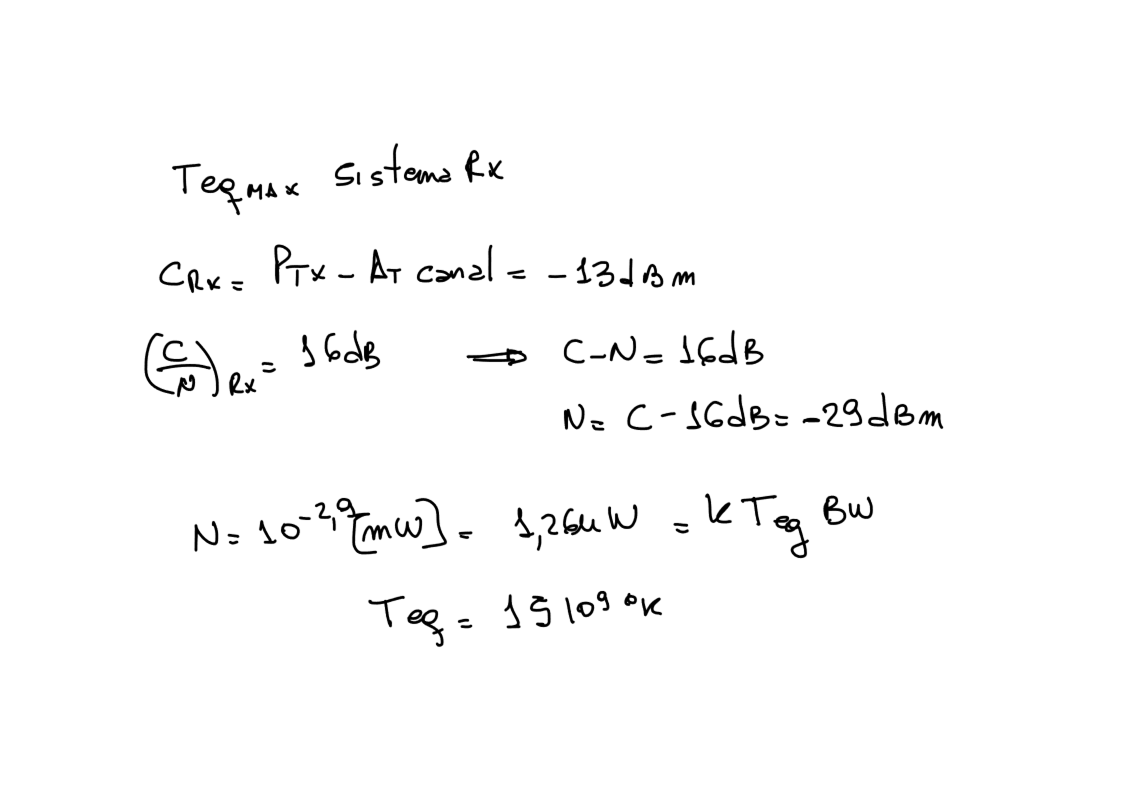 Teq MAX Sistema Rx
CRx = PTx - AT canal = -13dBm
(C/N)Rx = 16dB ⇒ C-N = 16dB
N = C - 16dB = -29dBm
N = 10^-2,9 [mW] = 1,26uW = k Teq BW
Teq = 15 10^9 °K